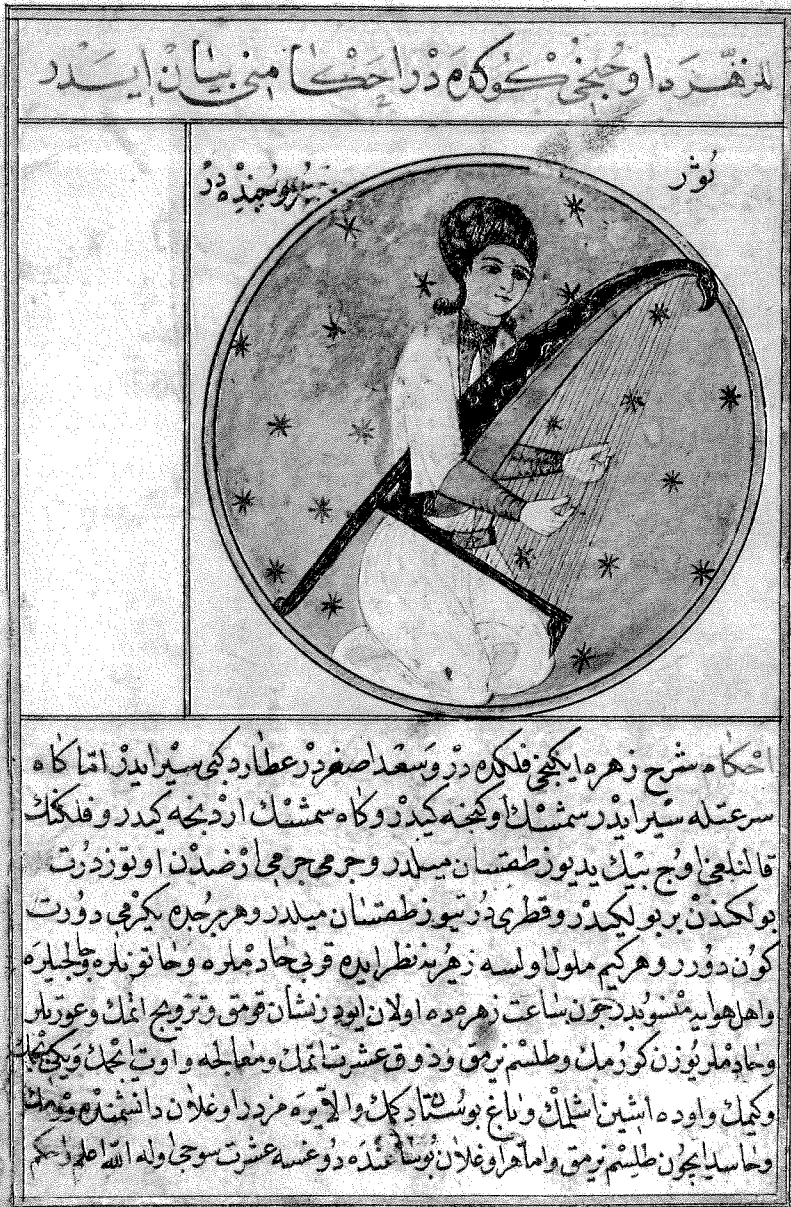 للزهره اوچنجی كوكده در احكامنی بیان ایدر
ثور
برجنده در
احكام شرح زهره ایكنجی فلكده در وسعد اصغر در عطارد كبی سیر ایدر اما كاه
سرعتله سیر ایدر شمسك اوكنجه كیدر وكاه شمسك اردنجه كیدر و فلكنك
قالنلغی اوچ بیك یدیوز طقسان میلدر وجرمی جرمی ارضدن اوتوز درت
بولكدن بر بولیكیدر وقطری درتیوز طقسان میلدر وهر برجده یكرمی دورت
كون دورر وهر كیم ملول اولسه زهره یه نظر ایده قوبی خادملره وخاتونلره وچالجیلره
واهل هوایه منسوبدر چون ساعت زهره ده اولان ایودر نشان قومق وتزویج اتمك وعورتلر
وخادملر یوزن كورمك وطلسم یزمق وذوق عشرت اتمك ومعالجه واوت ایچمك ویكی بچمك
وكیمك واوده ایشین اشلمك وباغ بوستان دكمك
وحاسد ایچون طلسم یزمق واما هر اوغلان بو ساعتده دوغسه عشرت سوجی اوله الله اعلم